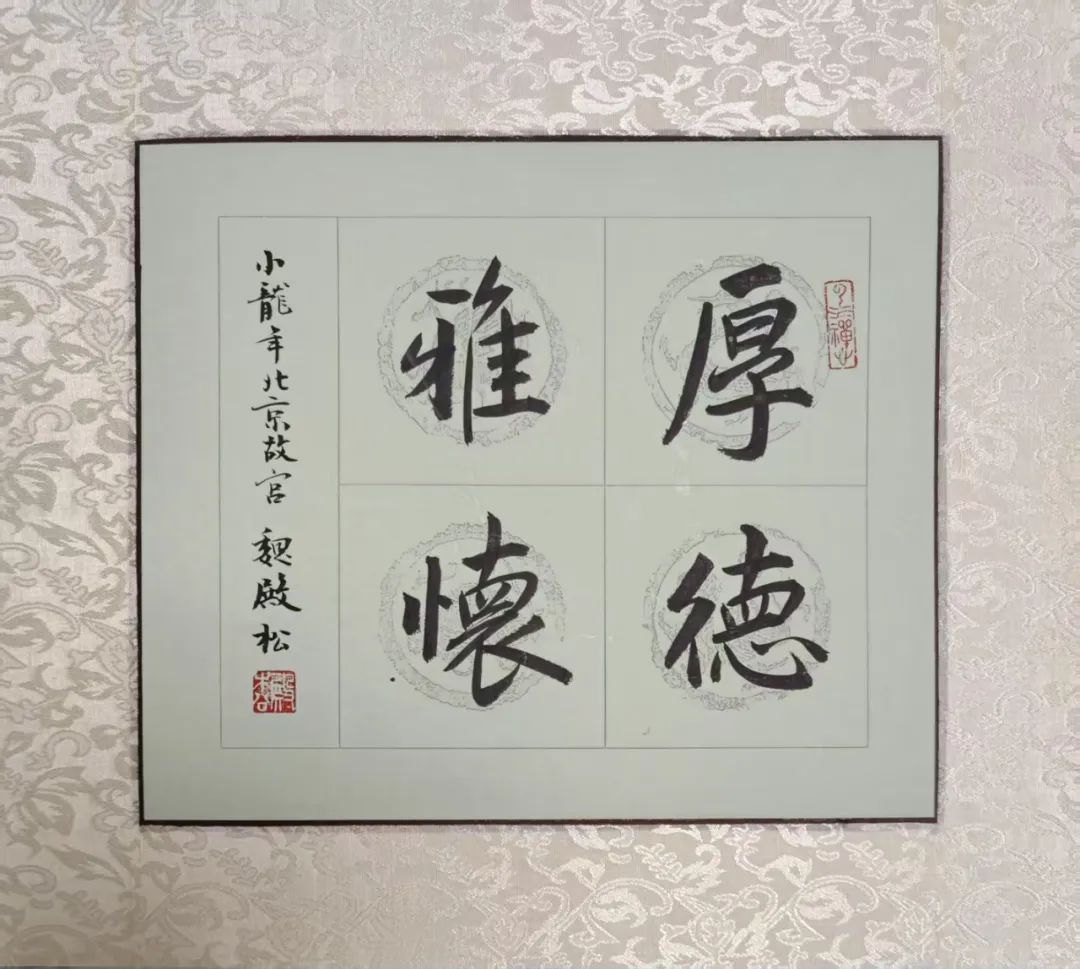 厚德
雅懷
小龍年北京故宮 魏殿松